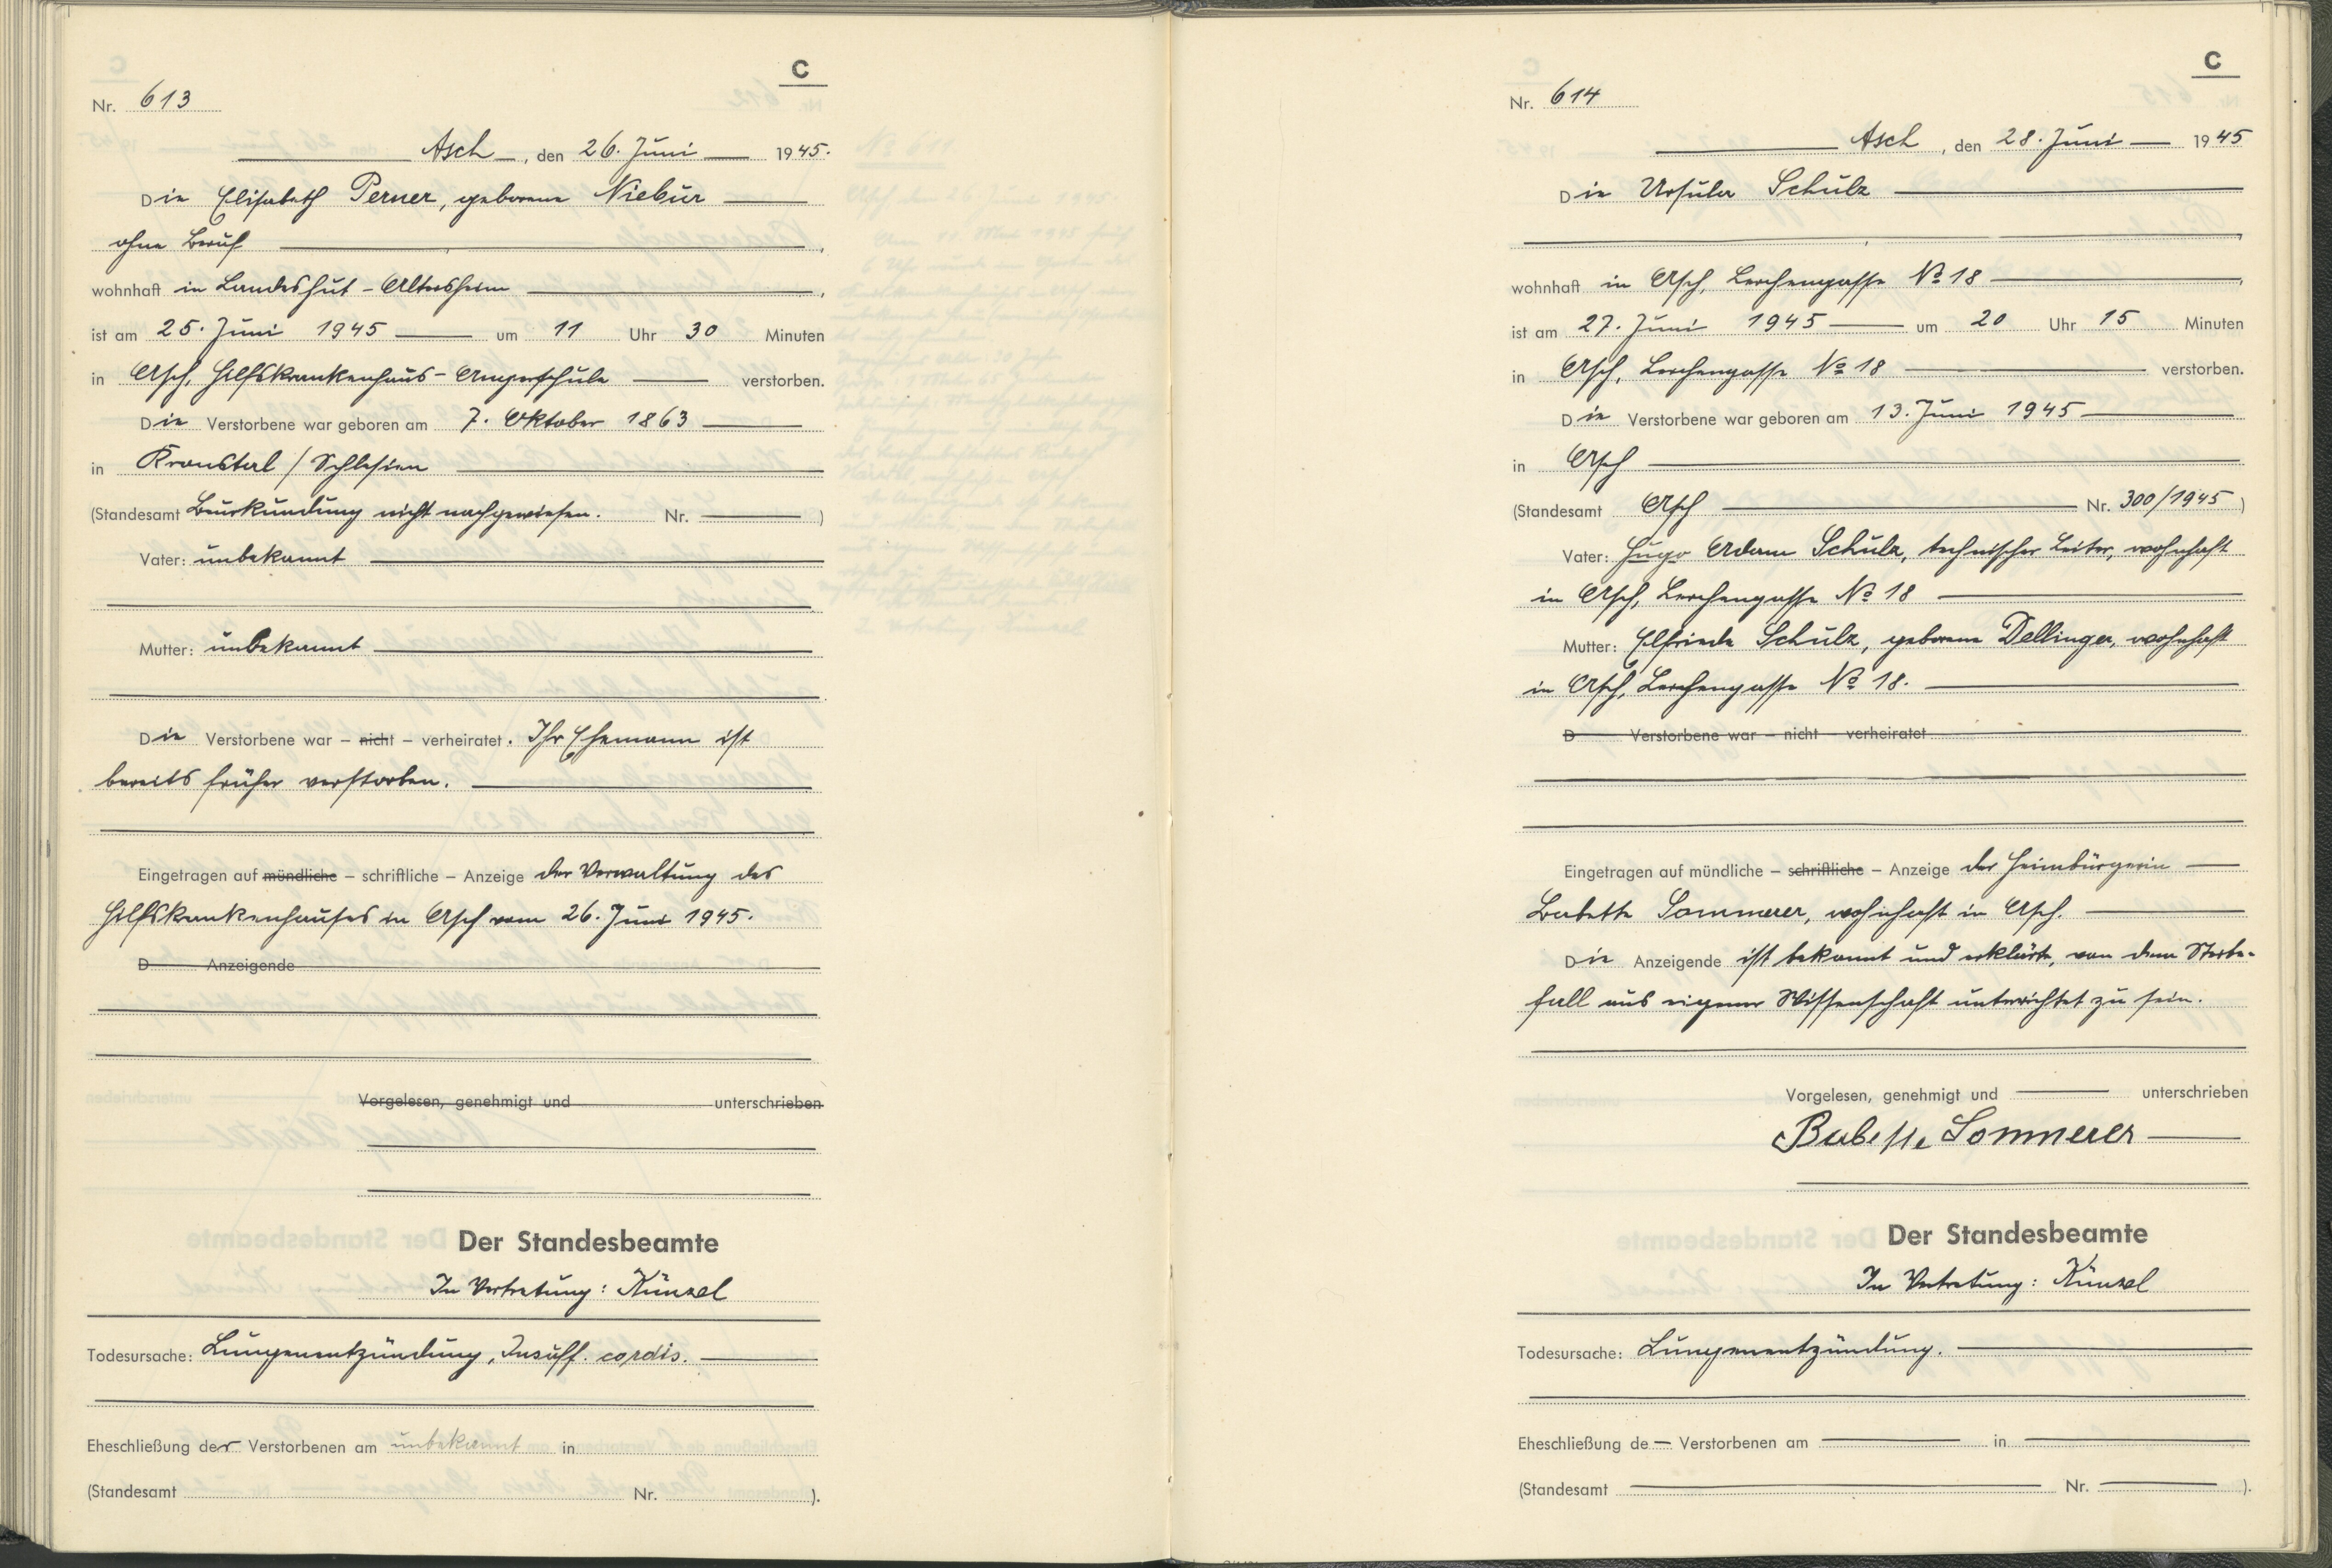 C
Nr. 613
Asch, den 26. Juni 1945.
Die Elisabeth Perner, geborene Niebür
ohne Beruf,
wohnhaft in Landeshut - Altersheim,
ist am 25. Juni 1945 um 11 Uhr 30 Minuten
in Asch, Hilfskrankenhaus - Angerschule verstorben.
Die Verstorbene war geboren am 7. Oktober 1863
in Kronstal / Schlesien
(Standesamt Beurkundung nicht nachgewiesen. Nr. )
Vater: unbekannt
Mutter: unbekannt
Die Verstorbene war – nicht – verheiratet. Ihr Ehemann ist
bereits früher verstorben.
Eingetragen auf mündliche – schriftliche – Anzeige der Verwaltung des
Hilfskrankenhauses in Asch vom 26. Juni 1945.
D Anzeigende
Vorgelesen, genehmigt und unterschrieben
Der Standesbeamte
In Vertretung: Künzel
Todesursache: Lungenentzündung, Insuff. cordis.
Eheschließung der Verstorbenen am unbekannt in
(Standesamt Nr. ).
C
Nr. 614
Asch, den 28. Juni 1945
Die Ursula Schulz
,
wohnhaft in Asch, Lerchengasse No 18,
ist am 27. Juni 1945 um 20 Uhr 15 Minuten
in Asch, Lerchengasse No 18 verstorben.
Die Verstorbene war geboren am 13. Juni 1945
in Asch
(Standesamt Asch Nr. 300/1945 )
Vater: Hugo Adam Schulz, technischer Leiter, wohnhaft
in Asch, Lerchengasse No 18
Mutter: Elfriede Schulz, geborene Dellinger, wohnhaft
in Asch, Lerchengasse No 18.
D Verstorbene war – nicht – verheiratet
Eingetragen auf mündliche – schriftliche – Anzeige der Heimbürgerin
Babette Sommerer, wohnhaft in Asch.
Die Anzeigende ist bekannt und erklärte, von dem Sterbe-
fall aus eigener Wissenschaft unterrichtet zu sein.
Vorgelesen, genehmigt und unterschrieben
Babette Sommerer
Der Standesbeamte
In Vertretung: Künzel
Todesursache: Lungenentzündung.
Eheschließung de Verstorbenen am in
(Standesamt Nr. ).